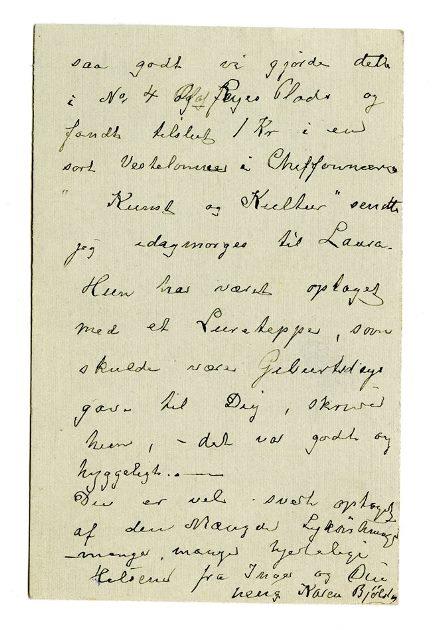 saa godt vi gjorde dette
i No. 4 Olaf Ryes Plads og
fandt tilslut 1 Kr i en
sort Vestelomme i Chiffonnieren
"Kunst og Kultur" sendte
jeg idagmorges til Laura.
Hun har været optaget
med et Luretæppe, som
skulde være Geburtsdags
gave til Dig, skriver
hun, – det var godt og
hyggeligt. —
Du er vel svært optaget
af den Mængde
– mange, mange hjertelige
Hilsener fra Inger og Din
heng. Karen Bjølstad